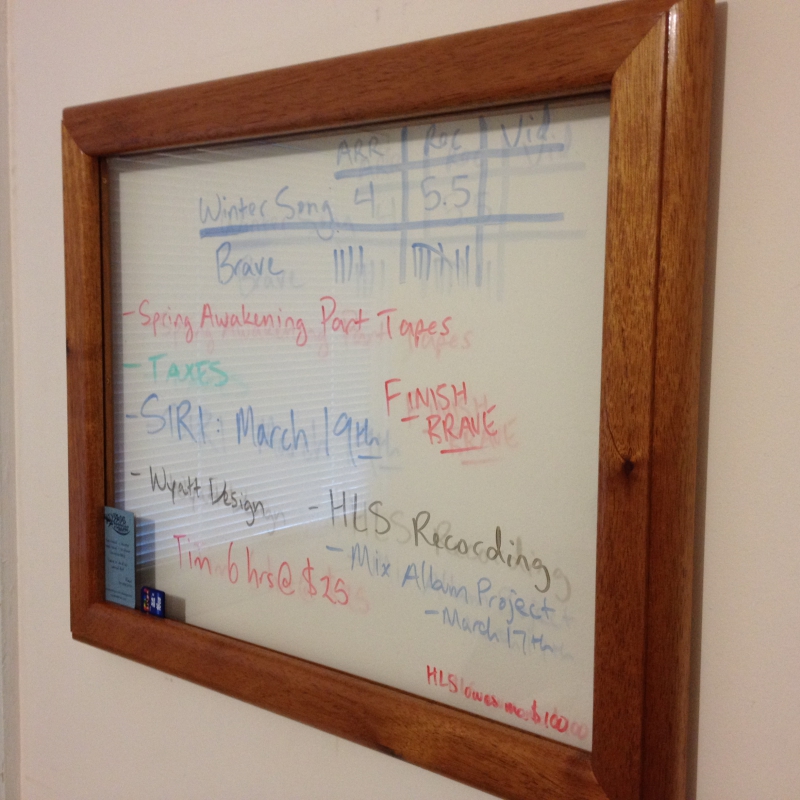 ARR Rec Vid
Winter Song 4 5.5
Brave
- Spring Awakening Part Tapes
- TAXES
FINISH
BRAVE
- SIRI: March 19th
- Wyatt Design
- HLS Recording
- Mix Album Project
- March 17th
Tim 6 hrs @ $25
HLS owes me $100